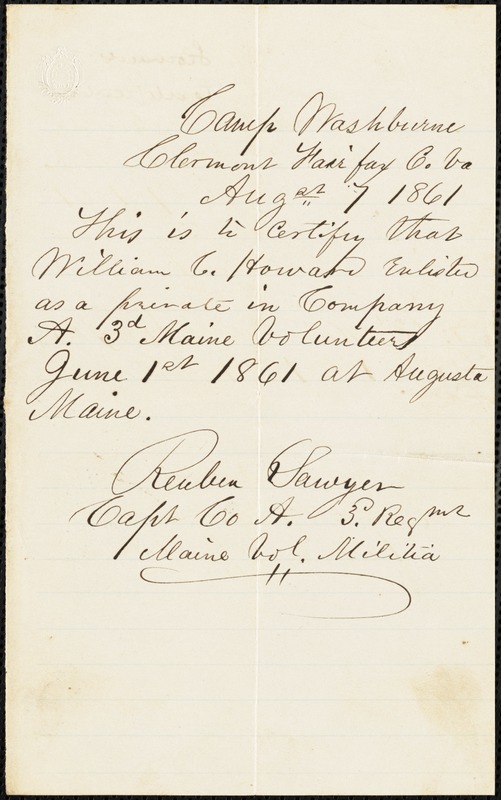 Camp Washburne
Clermont Fairfax C. Va
Augst 7 1861
This is to Certify that
William C. Howard Enlisted
as a private in Company
A. 3d Maine Volunteers
June 1st 1861 at Augusta
Maine.
Reuben Sawyer
Capt Co A. 3d Regmt
Maine Vol. Militia